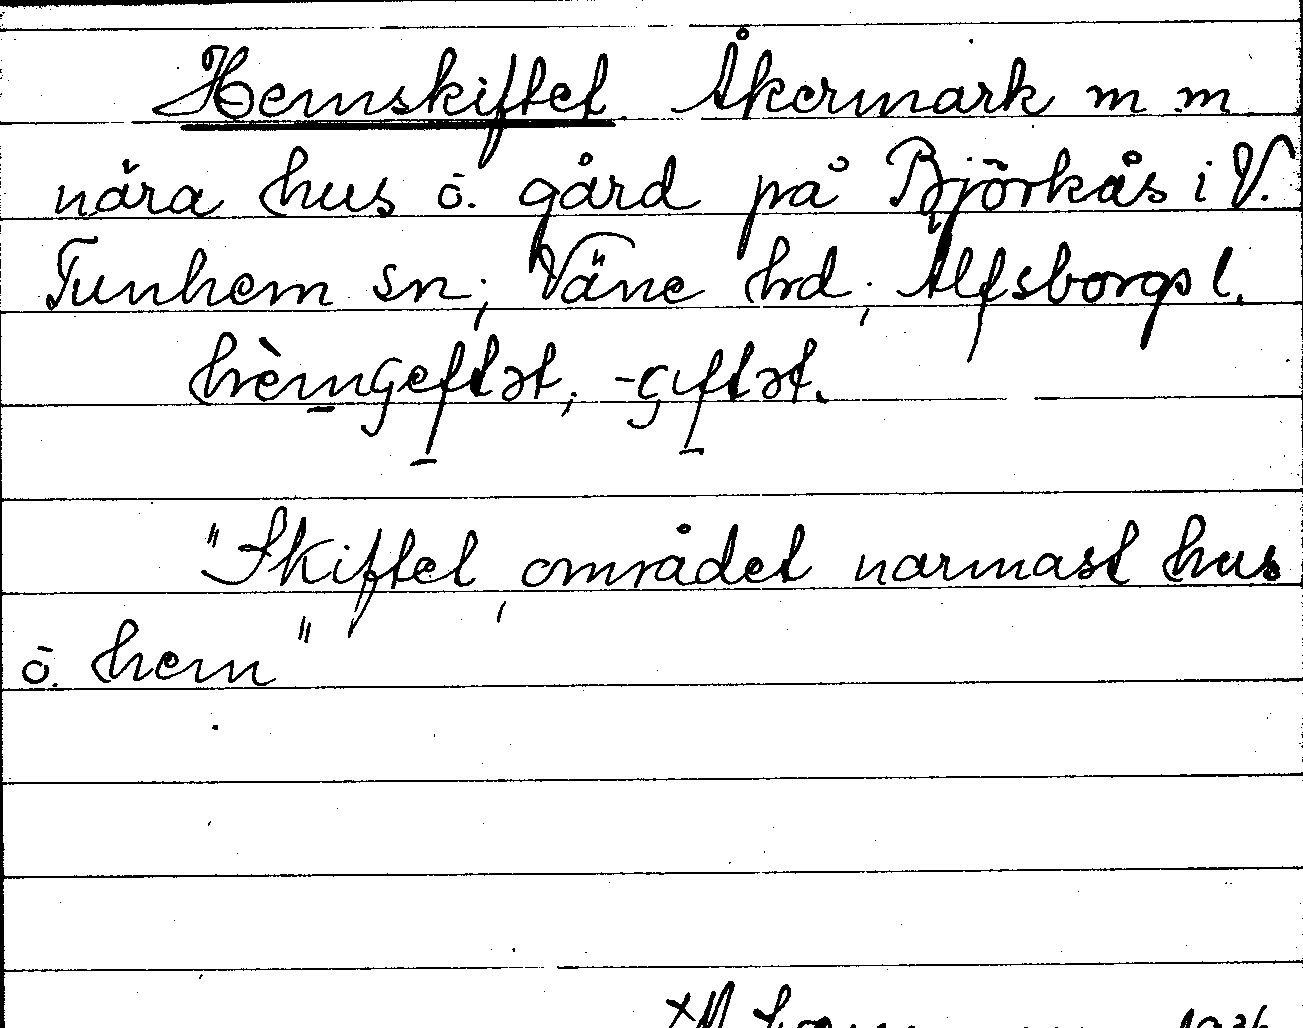 Hemskiftet. Åkermark m m
nära hus o. gård på Björkås i V.
Tunhem sn, Väne hd, Älfsborgs l.
hèmçeftət, -çıftət.
"Skiftet, området narmast hus
o. hem"